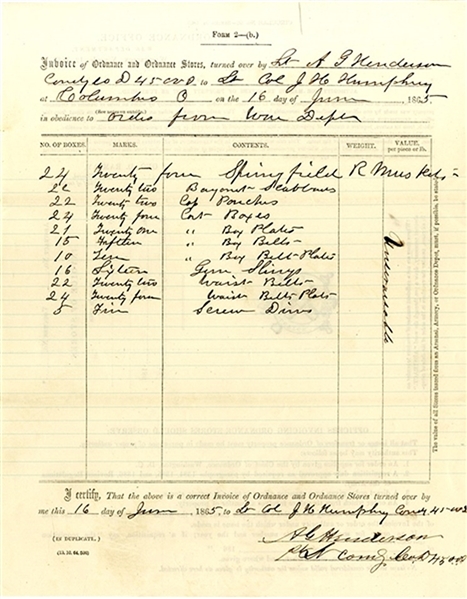 FORM 2—(b.)
Invoice of Ordnance and Ordnance Stores, turned over by Lt A G Henderson
Comdg Co D 45 O.V.I. to Lt Col J H Humphrey
at Columbus O on the 16 day of June 1865
in obedience to orders from War Dept
NO. OF BOXES. MARKS. CONTENTS. WEIGHT. VALUE, per piece or lb.
24 Twenty four Springfield R Muskets
22 Twenty two Bayonet Scabbards
22 Twenty two Cap Pouches
24 Twenty four Cart Boxes
21 Twenty One " Box Plates
15 Fifteen " Box Belts
10 Ten " Box Belt Plates
16 Sixteen Gun Slings
22 Twenty two Waist Belts
24 Twenty four Waist Belts Plats
5 Five Screw Divs
Unserviceable
The value of all Stores issued from an Arsenal, Armory, or Ordnance Depot, must, if possible, be stated.
I certify, That the above is a correct Invoice of Ordnance and Ordnance Stores turned over by
me this 16 day of June 1865, to Lt Col J H Humphrey Comdg 45 OVI
A G Henderson
Comdg Co D 45 OVI
(IN DUPLICATE.)